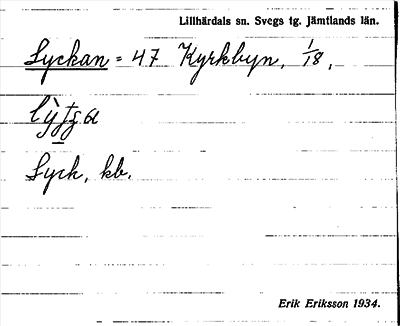 Lillhärdals sn. Svegs tg. Jämtlands län.
Lyckan = 47 Kyrkbyn, 1/18,
Lyck, kb.
Erik Eriksson 1934.